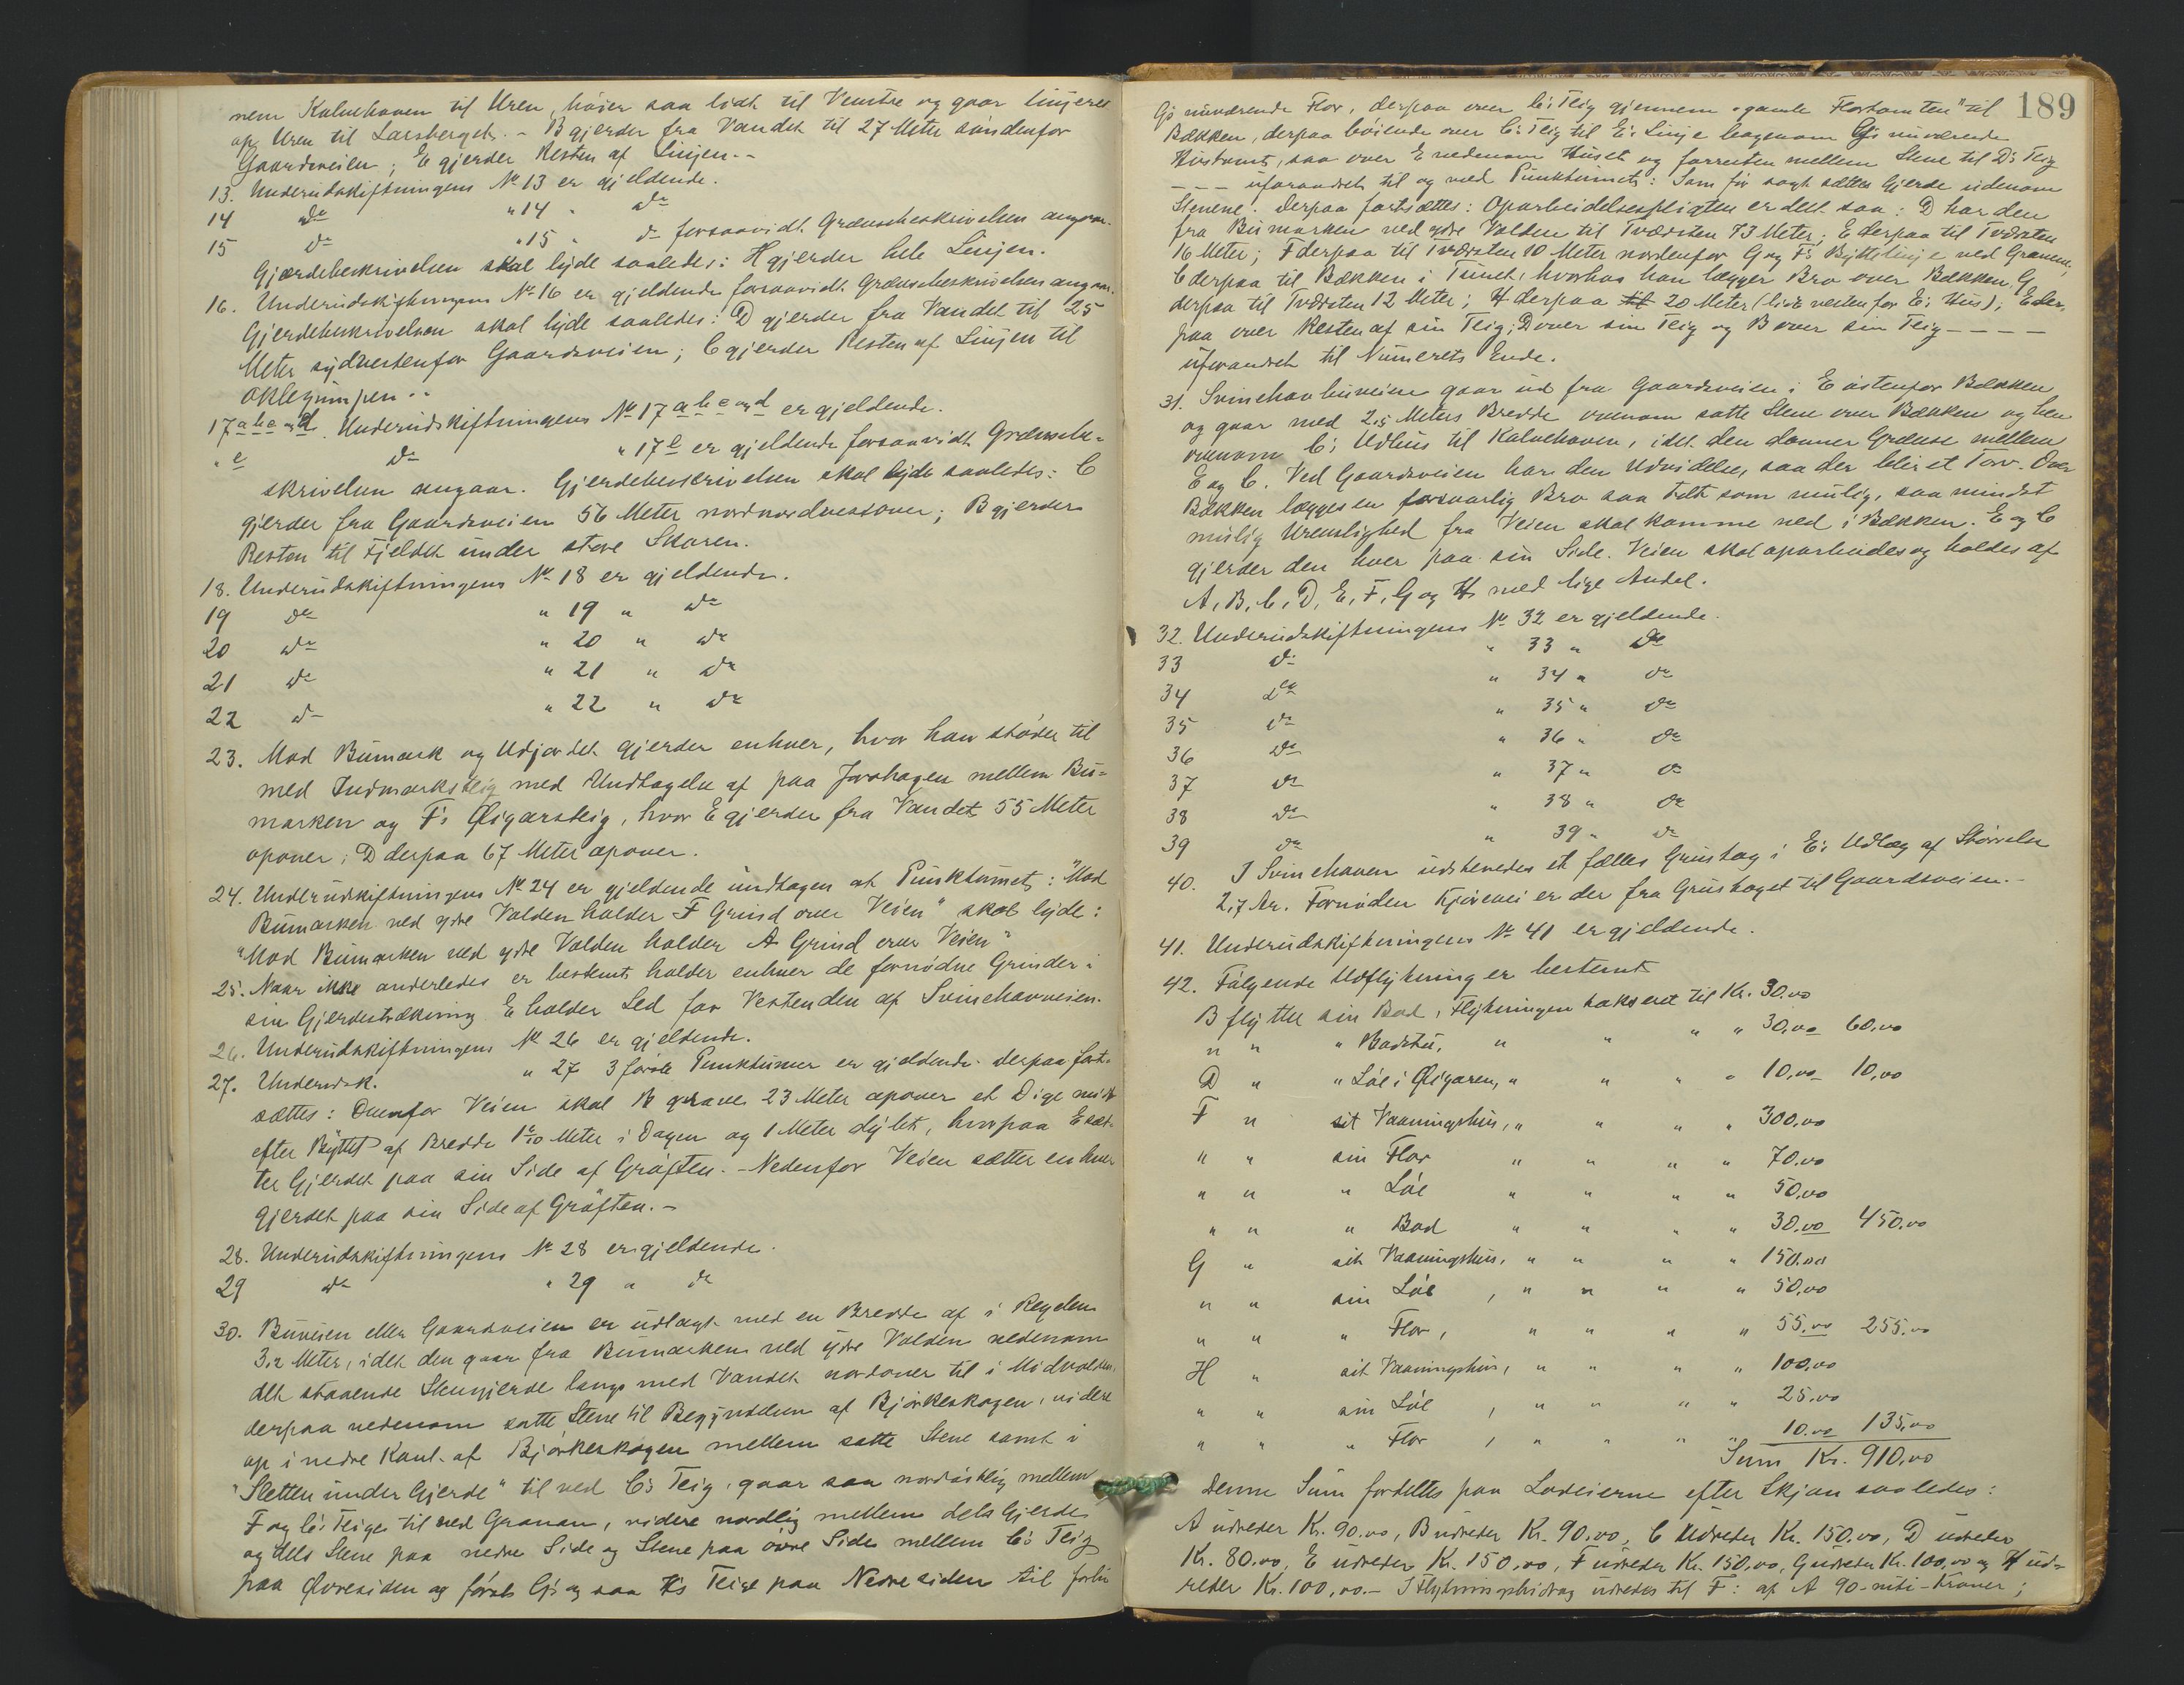 nem Kalvehaven til Uren, höier saa lidt til Venstre og gaar linjeret
op Uren til Larsberget. - B gjerder fra Vandet til 27 Meter söndenfor
Gaardsveien; E gjerder Resten af Linjen. -
13. Underudskiftningens No 13 er gjeldende.
14 do " 14 " do
15 do " 15 " do forsaavidt Grænsebeskrivelsen angaar.
Gjærdebeskrivelsen skal lyde saaledes: H gjerder hele Linjen.
16. Underudskiftningens No 16 er gjeldende forsaavidt Grænsebeskrivelsen angaar.
Gjerdebeskrivelsen skal lyde saaledes: D gjerder fra Vandet til 25
Meter sydvestenfor Gaardsveien; C gjerder Resten af Linjen til
Oklegjimpen. -
17 a b c og d. Underudskiftningens No 17 a b c og d er gjeldende.
" e do " 17 e er gjeldende forsaavidt Grænsebe-
skrivelsen angaar. Gjerdebeskrivelsen skal lyde saaledes: C
gjerder fra Gaardsveien 56 Meter nordnordvestover; B gjerder
Resten til Fjeldet under store Skaren.
18. Underudskiftningens No 18 er gjeldende.
19 do " 19 " do
20 do " 20 " do
21 do " 21 " do
22 do " 22 " do
23. Mod Bumark og Udjordet gjerder enhver, hvor han stöder til
med Indmarksteig med Undtagelse af paa Jorahagen mellem Bu-
marken og F's Øigarsteig, hvor E gjerder fra Vandet 55 Meter
opover; D derpaa 67 Meter opover.
24. Underudskiftningens No 24 er gjeldende undtagen at Punktumet: "Mod
Bumarken ved ydre Volden holder F Grind over Veien" skal lyde:
"Mod Bumarken ved ydre Volden holder A Grind over Veien"
25. Naar ikke anderledes er bestemt holder enhver de fornödne Grinder i
sin Gjerdestrækning. E holder Led for Vestenden af Svinehavveien.
26. Underudskiftningens No 26 er gjeldende.
27. Underudsk. " 27 3 förste Punktumer er gjeldende. Derpaa fort-
sættes: Ovenfor Veien skal B grave 23 Meter opover et Dige midt
efter Byttet af Bredde 1 2/10 Meter i Dagen og 1 Meter dybt, hvorpaa E sæt-
ter Gjerdet paa sin Side af Gröften. - Nedenfor Veien sætter enhver
gjerdet paa sin Side af Gröften. -
28. Underudskiftningens No 28 er gjeldende.
29 do " 29 " do
30. Buveien eller Gaardsveien er udlagt med en Bredde af i Regelen
3,2 Meter, idet den gaar fra Bumarken ved ydre Volden nedenom
det staaende Stengjerde langs med Vandet nordover til i Midvolden,
derpaa nedenom satte Stene til Begyndelsen af Björkeskogen, videre
op i nedre Kant af Björkeskogen mellem satte Stene samt i
"Sletten under Gjerde" til ved C's Teig, gaar saa nordöstlig mellem
F og C's Teiger til ved Granan, videre nordlig mellem dels Gjerde
og dels Stene paa nedre Side og Stene paa övre Side mellem C's Teig
paa Øvresiden og först G's og saa H's Teige paa Nedresiden til forbi
189
G's nuværende Flor, derpaa over C's Teig gjennem "gamle Flortomten" til
Bækken, derpaa böiende over C's Teig til E's Linje bagenom G's nuværende
Hustomt, saa over E nedenom Huset og forresten mellem Stene til D's Teig
- - - uforandret til og med Punktumet: Som för sagt sættes Gjerde udenom
Stenene. Derpaa fortsættes: Oparbeidelsespligten er delt saa: D har den
fra Bumarken ved ydre Volden til Tværsten 73 Meter; E derpaa til Tværsten
16 Meter; F derpaa til Tværsten 10 Meter nordenfor G og F's Byttelinje ved Granan,
C derpaa til Bækken i Tunet, hvorhos han lægger Bro over Bækken. G
derpaa til Tværsten 12 Meter; H derpaa til 20 Meter (lidt vesten for E's Hus); E der-
paa over Resten af sin Teig; D over sin Teig og B over sin Teig - - - -
uforandret til Numerets Ende.
31. Svinehavbuveien gaar ud fra Gaardsveien i E östenfor Bækken
og gaar med 2,5 Meters Bredde ovenom satte Stene over Bækken og hen
ovenom C's Udhus til Kalvehaven, idet den danner Grænse mellem
E og C. Ved Gaardsveien har den Udvidelse, saa der blir et Torv. Over
Bækken lægges en forsvarlig Bro saa tæt som mulig, saa mindst
mulig Urenslighed fra Veien skal komme ned i Bækken. E og C
gjerder den hver paa sin Side. Veien skal oparbeides og holdes af
A, B, C, D, E, F, G og H med lige Andel.
32. Underudskiftningens No 32 er gjeldende.
33 do " 33 " do
34 do " 34 " do
35 do " 35 " do
36 do " 36 " do
37 do " 37 " do
38 do " 38 " do
39 do " 39 " do
40. I Svinehaven udstenedes et fælles Grustag i E's Udlæg af Störrelse
2,7 Ar. Fornöden Kjörevei er der fra Grustaget til Gaardsveien. -
41. Underudskiftningens No 41 er gjeldende.
42. Fölgende Udflytning er bestemt
B flytter sin Bod, Flytningen takseret til Kr. 30,00
" " " Badstu, " " " " 30,00 60,00
D " " Löe i Øigaren, " " " " 10,00 10,00
F " sit Vaaningshus, " " " " 300,00
" " sin Flor " " " " 70,00
" " " Löe " " " " 50,00
" " " Bod " " " " 30,00 450,00
G " sit Vaaningshus, " " " " 150,00
" " sin Löe , " " " " 50,00
" " " Flor, " " " " 55,00 255,00
H " sit Vaaningshus, " " " " 100,00
" " sin Löe , " " " " 25,00
" " " Flor , " " " " 10,00 135,00
Sum Kr. 910,00
Denne Sum fordeltes paa Lodeierne efter Skjön saaledes:
A udreder Kr. 90,00, B udreder Kr. 90,00, C udreder Kr. 150,00, D udreder
Kr. 80,00, E udreder Kr. 150,00, F udreder Kr. 150,00, G udreder Kr. 100,00 og H ud-
reder Kr. 100,00. - I Flytningsbidrag udredes til F: af A 90 - niti - Kroner;